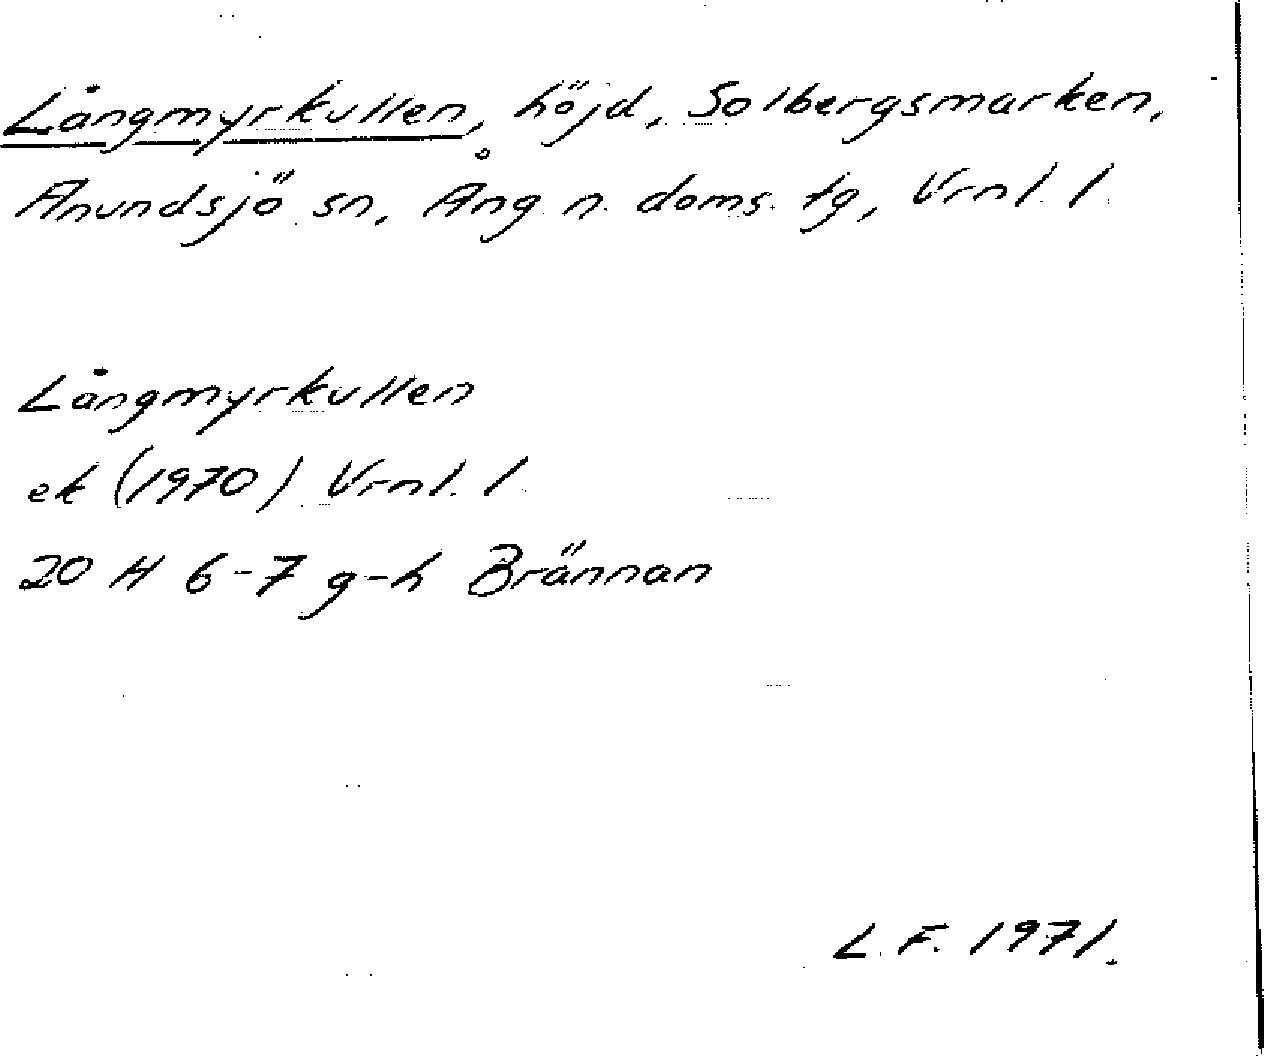 Långmyrkullen, höjd, Solbergsmarken,
Anundsjö sn, Ång n. doms. tg, Vrnl. l.
Långmyrkullen
ek (1970) Vrnl. l.
20 H 6-7 g-h Brännan
L. F. 1971.